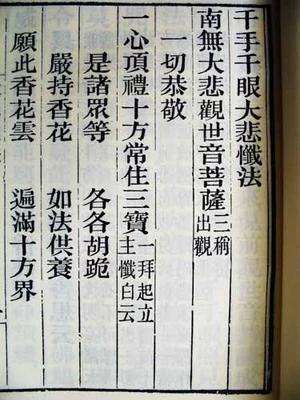 千手千眼大悲懺法
南無大悲觀世音菩薩三稱出觀
一切恭敬
一心頂禮十方常住三寶一拜起立主懺白云
是諸眾等 各各胡跪
嚴持香花 如法供養
願此香花雲 遍滿十方界